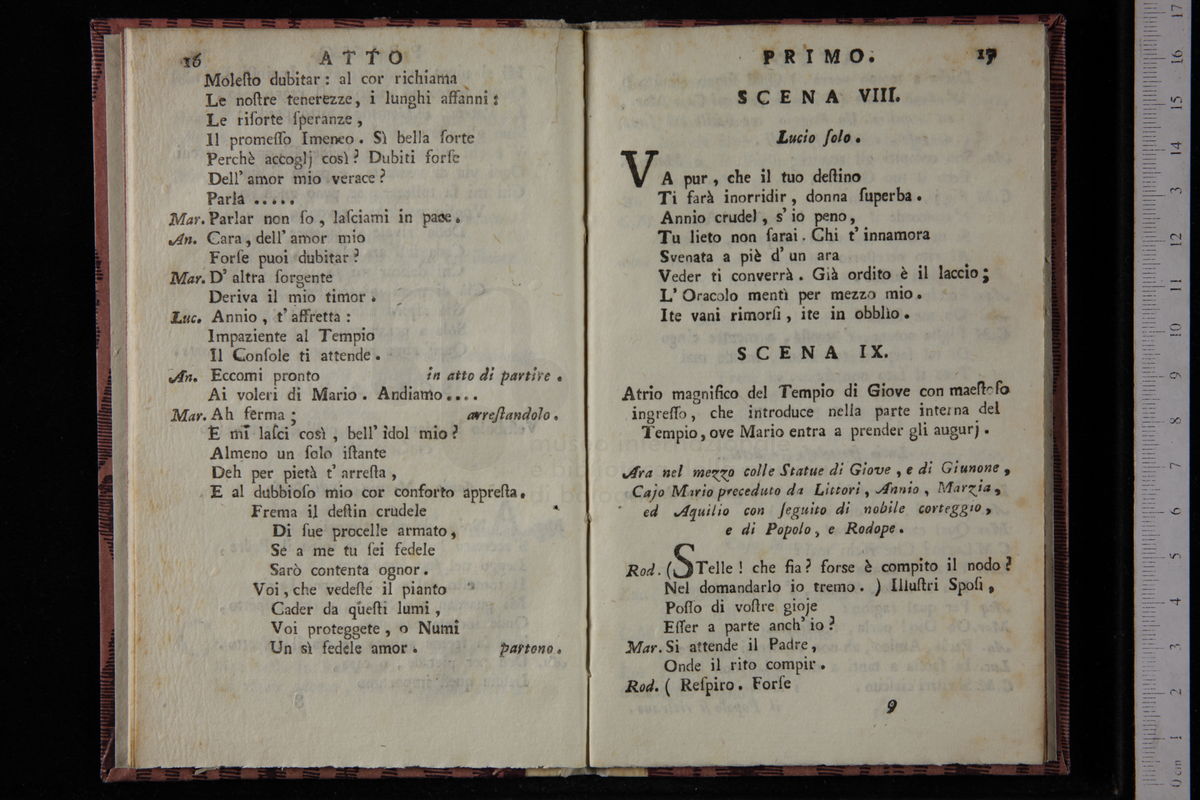 16 ATTO
Moleſto dubitar : al cor richiama
Le noſtre tenerezze, i lunghi affanni :
Le riſorte ſperanze ,
Il promeſſo Imeneo . Sì bella ſorte
Perchè accoglj così ? Dubiti forſe
Dell' amor mio verace ?
Parla .....
Mar. Parlar non ſo , laſciami in pace .
An. Cara , dell' amor mio
Forſe puoi dubitar ?
Mar. D' altra ſorgente
Deriva il mio timor .
Luc. Annio , t' affretta :
Impaziente al Tempio
Il Conſole ti attende .
An. Eccomi pronto in atto di partire .
Ai voleri di Mario . Andiamo ....
Mar. Ah ferma ; arreſtandolo .
E mi laſci così , bell' idol mio ?
Almeno un ſolo iſtante
Deh per pietà t' arreſta ,
E al dubbioſo mio cor conforto appreſta .
Frema il deſtin crudele
Di ſue procelle armato ,
Se a me tu ſei fedele
Sarò contenta ognor .
Voi , che vedeſte il pianto
Cader da queſti lumi ,
Voi proteggete , o Numi
Un sì fedele amor . partono .
PRIMO. 17
SCENA VIII.
Lucio ſolo .
VA pur , che il tuo deſtino
Ti farà inorridir , donna ſuperba .
Annio crudel , s' io peno ,
Tu lieto non ſarai . Chi t' innamora
Svenata a piè d' un ara
Veder ti converrà . Già ordito è il laccio ;
L' Oracolo mentì per mezzo mio .
Ite vani rimorſi , ite in obblìo .
SCENA IX.
Atrio magnifico del Tempio di Giove con maeſtoſo
ingreſſo , che introduce nella parte interna del
Tempio, ove Mario entra a prender gli augurj .
Ara nel mezzo colle Statue di Giove , e di Giunone ,
Cajo Mario preceduto da Littori , Annio , Marzia ,
ed Aquilio con ſeguito di nobile corteggio ,
e di Popolo , e Rodope .
Rod. (STelle ! che fia ? forse è compito il nodo ?
Nel domandarlo io tremo . ) Illuſtri Spoſi ,
Poſſo di voſtre gioje
Eſſer a parte anch' io ?
Mar. Si attende il Padre ,
Onde il rito compir .
Rod. ( Reſpiro . Forſe
9
museo internazionale
e biblioteca
di bologna
0 cm 1 2 3 4 5 6 7 8 9 10 11 12 13 14 15 16 17